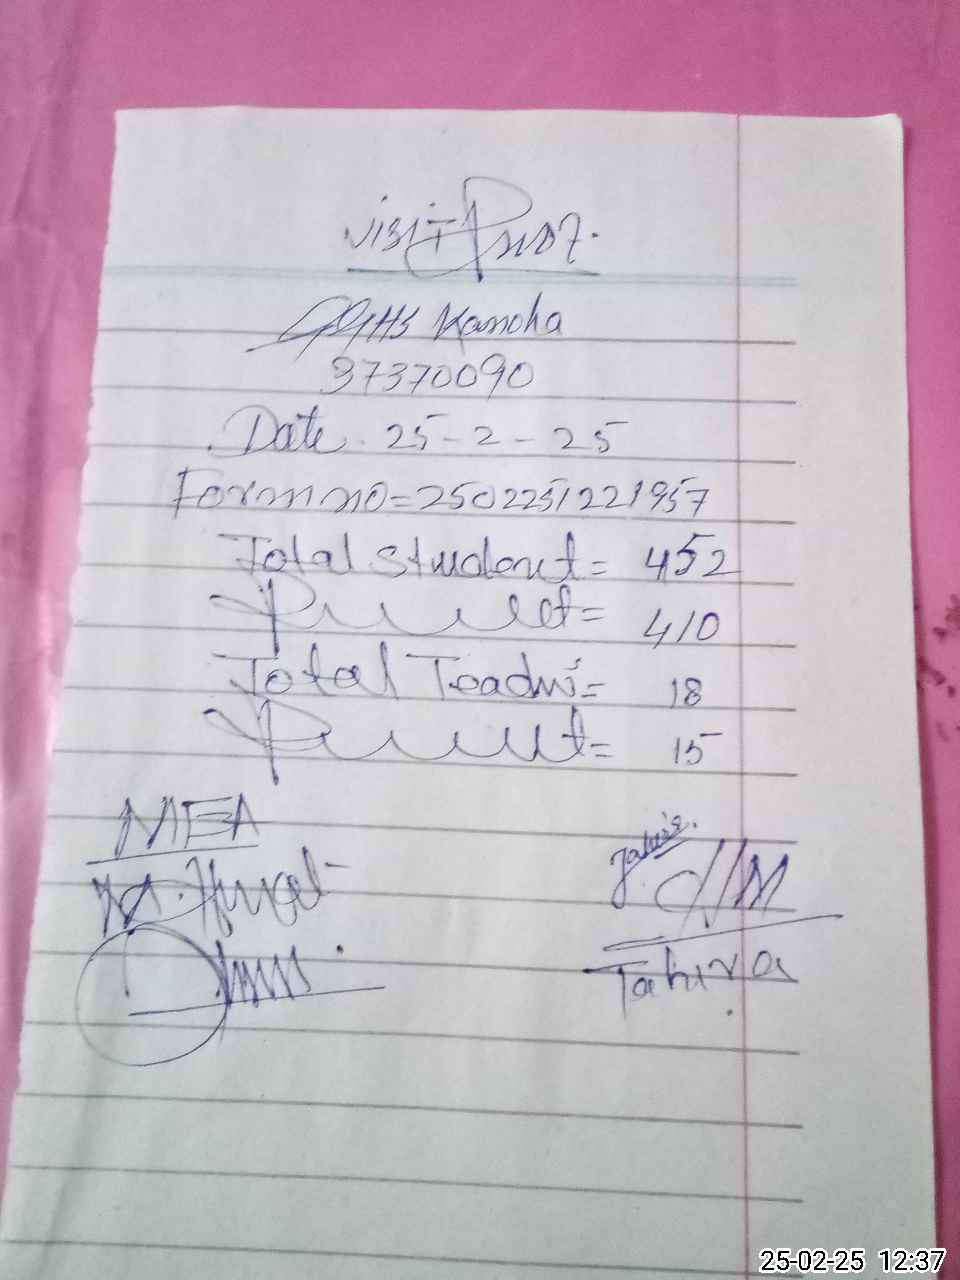 Visit Proof.
GGHS Kanoha
37370090
Date. 25-2-25
Form no=2502251221957
Total Student= 452
Present= 410
Total Teacher= 18
Present= 15
MEA
M.
HM
Tahira
25-02-25 12:37